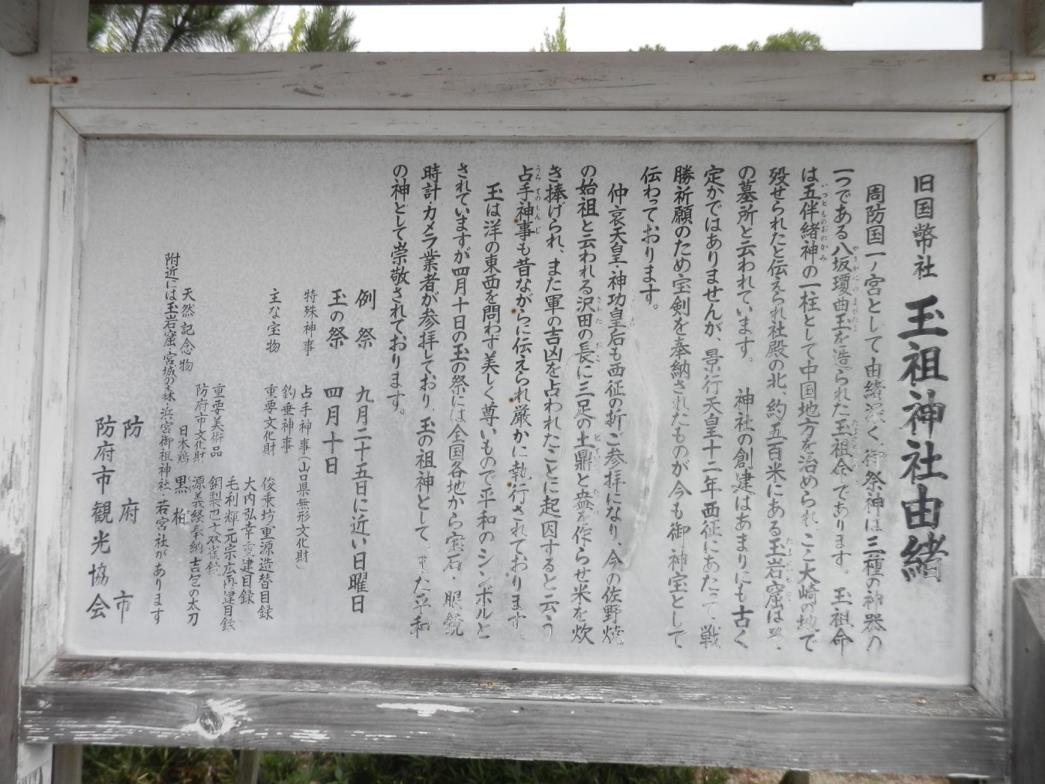 旧国幣社 玉祖神社由緒
周防国一ノ宮として由緒深く御祭神は三種の神器の
一つである八坂瓊曲玉を造られた玉祖命であります。玉祖命
は五伴緒神の一柱として中国地方を治められ、大崎の地で
歿せられたと伝えられ社殿の北、約五百米にある玉岩窟は
の墓所と云われています。 神社の創建はあまりにも古く
定かではありませんが、景行天皇十二年西征にあたって戦
勝祈願のため宝剣を奉納されたものが今も御神宝として
伝わっております。
仲哀天皇・神功皇后も西征の折ご参拝になり、今の佐野焼
の始祖と云われる沢田の長に三足の土鼎と盎を作らせ米を炊
き捧げられ、また軍の吉凶を占われたことに起因すると云う
占手神事も昔ながらに伝えられ厳かに執行されております。
玉は洋の東西を問わず美しく尊いもので平和のシンボルと
されていますが四月十日の玉の祭には全国各地から宝石・眼鏡
時計・カメラ業者が参拝しており、玉の祖神として、また平和
の神として崇敬されております。
例祭 九月二十五日に近い日曜日
玉の祭 四月十日
特殊神事 占手神事(山口県無形文化財)
釣垂神事
主な宝物 重要文化財 俊乗坊重源造替目録
大内弘幸重建目録
毛利輝元宗広再建目録
重要美術品 銅梨巴双雀鏡
防府市文化財 源義経奉納吉包の太刀
天然記念物 日本鶏 黒柏
附近には玉岩窟・宮城の森・浜宮御祖神社・若宮社があります
防府市
防府市観光協会